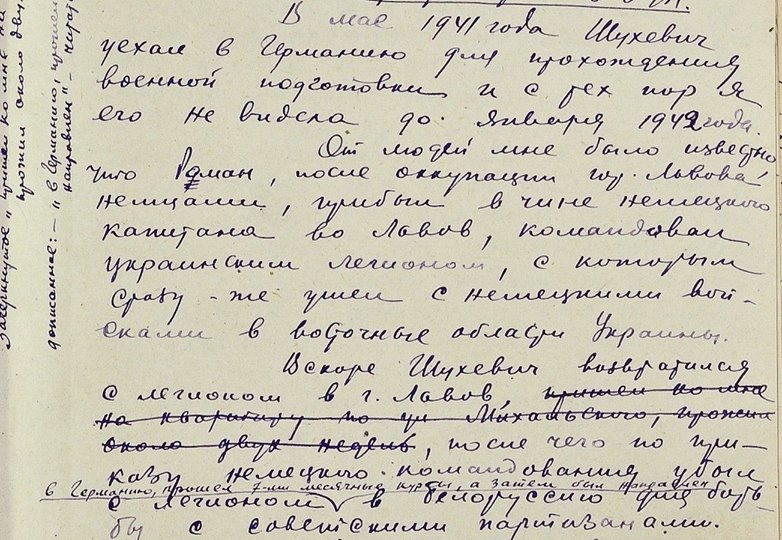 В мае 1941 года Шухевич
уехал в Германию для прохождения
военной подготовки и с тех пор я
его не видела до января 1942 года.
От людей мне было известно
что Роман, после оккупации гор. Львова
немцами, прибыл в чине немецкого
капитана во Львов, командовал
украинским легионом, с которым
сразу-же ушел с немецкими вой-
сками в восточные области Украины.
Вскоре Шухевич возвратился
с легионом в г. Львов, пришел ко мне
на квартиру по ул. Михальского, прожил
около двух недель, после чего по при-
казу немецкого командования убыл
в Германию, прошел 7-ми месячные курсы, а затем был направлен
с легионом в Белоруссию для борь-
бы с советскими партизанами.
зачеркнутое „пришел ко мне на
прожил около двух
дописанное: – „в Германию, прошел
направлен" – читать